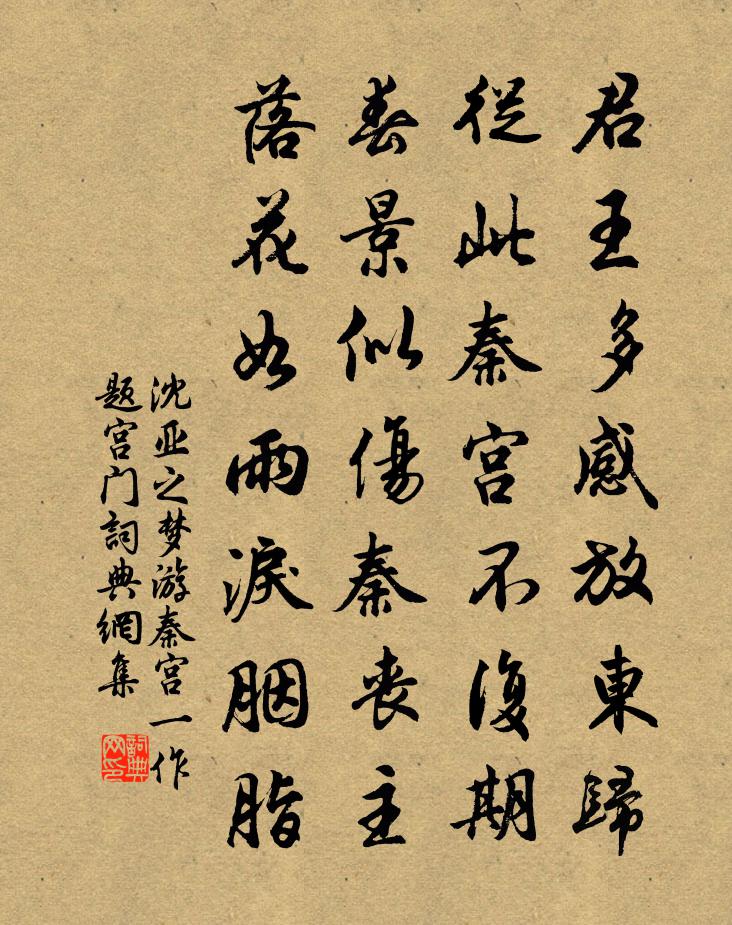 君王多感放東歸
從此秦宮不復期
春景似傷秦喪主
落花如雨淚胭脂
沈亚之梦游秦宫一作
题宫门詞典網集
詞典
网印